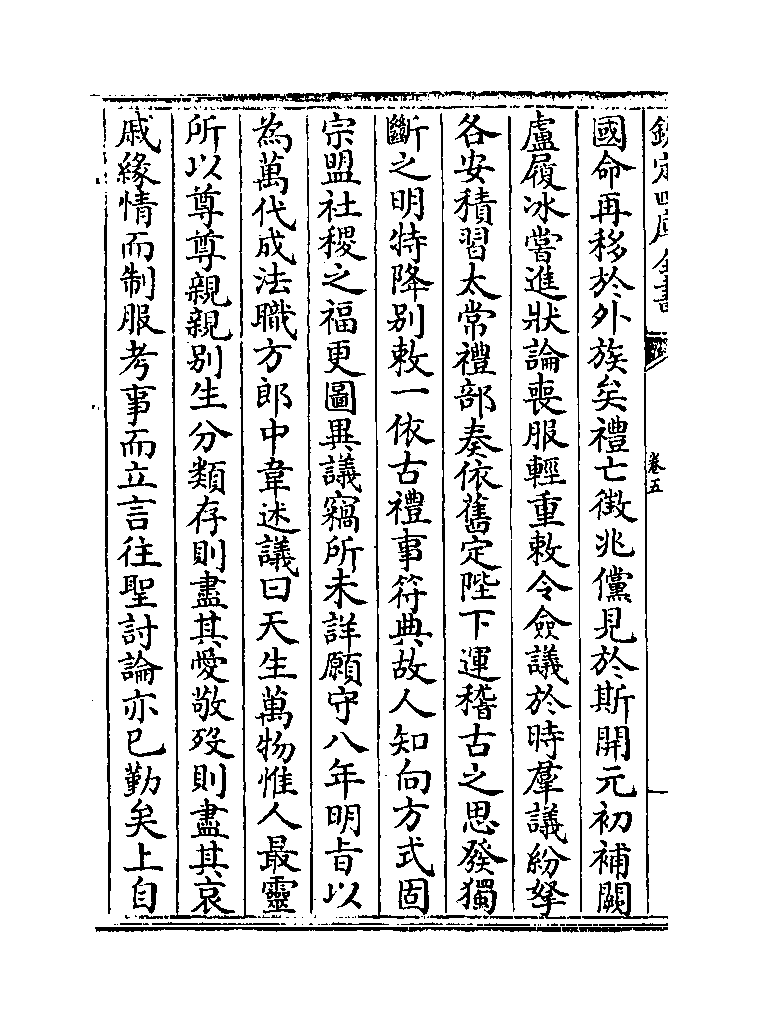 欽定四庫全書
卷五
國命再移於外族矣禮亡徵兆儻見於斯開元初補闕
盧履冰嘗進狀論喪服輕重敕令僉議於時羣議紛拏
各安積習太常禮部奏依舊定陛下運稽古之思發獨
斷之明特降別敕一依古禮事符典故人知向方式固
宗盟社稷之福更圖異議竊所未詳願守八年明旨以
為萬代成法職方郎中韋述議曰天生萬物惟人最靈
所以尊尊親親別生分類存則盡其愛敬歿則盡其哀
戚緣情而制服考事而立言往聖討論亦已勤矣上自